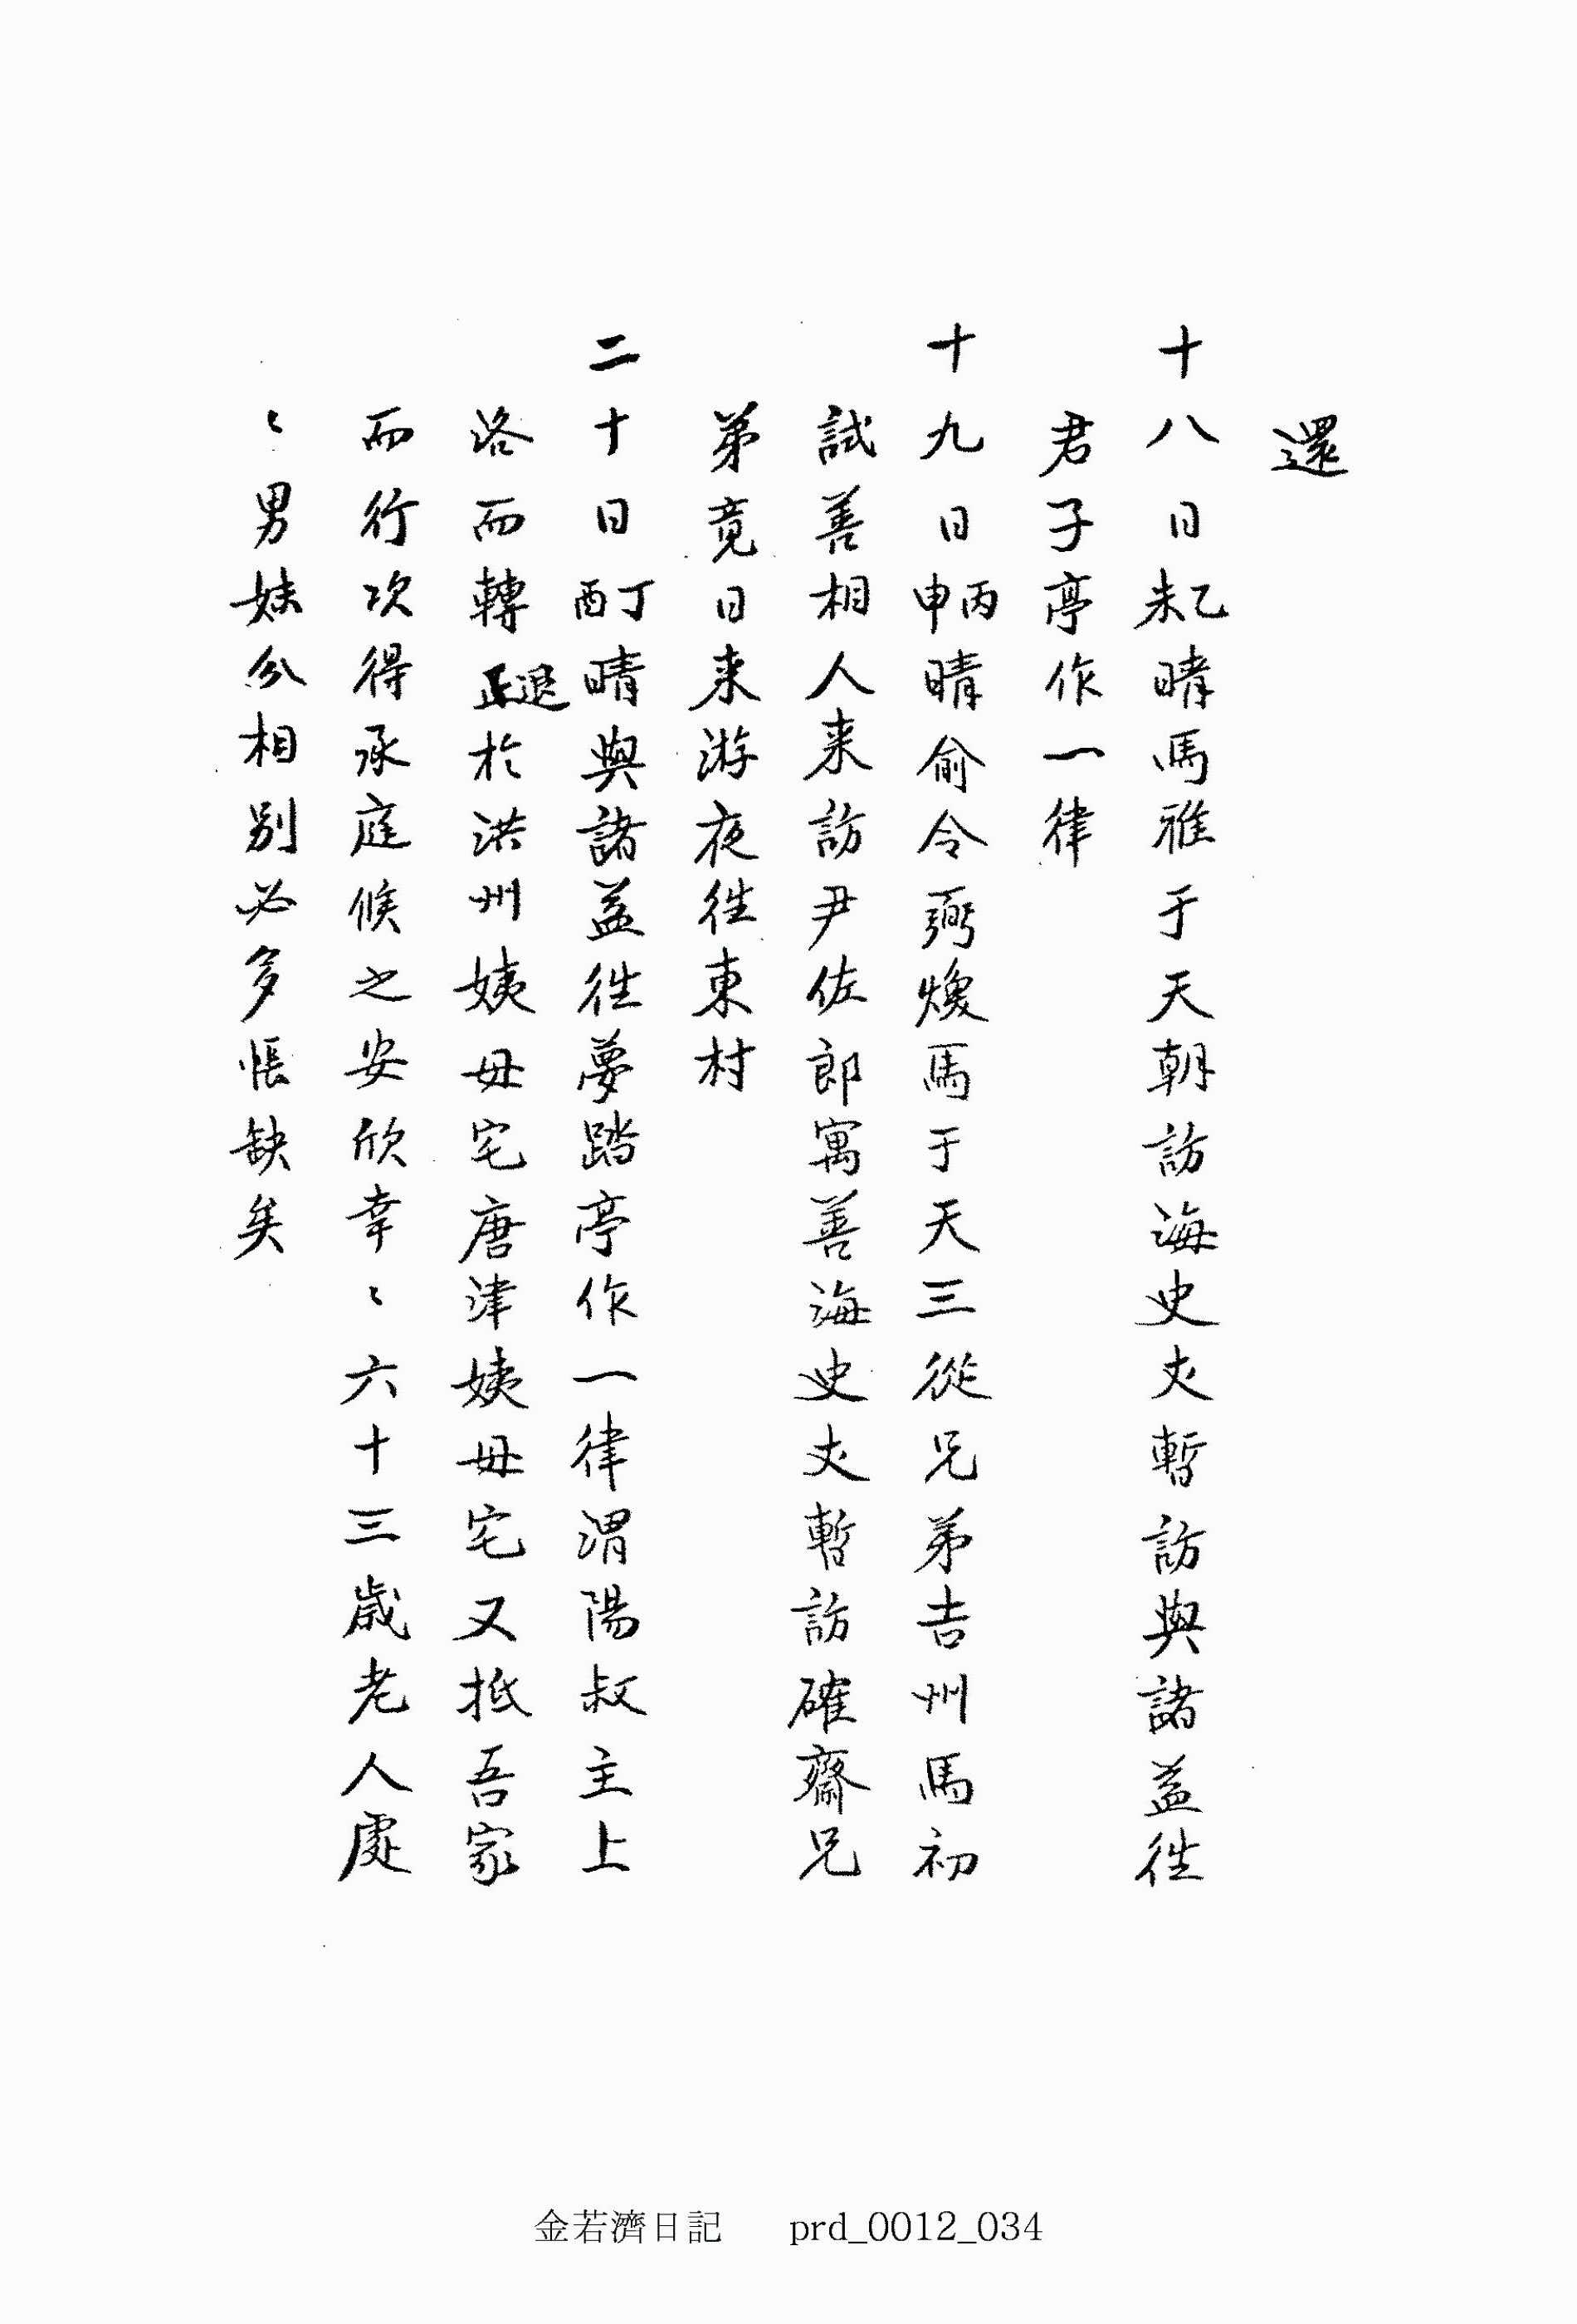 還
十八日乙未晴馬雅于天朝訪海史丈暫訪與諸益往
君子亭作一律
十九日丙申晴俞令弼煥馬于天三從兄弟吉州馬初
試善相人来訪尹佐郎寓善海史丈暫訪確齋兄
弟竟日来游夜往東村
二十日丁酉晴與諸益往夢踏亭作一律渭陽叔主上
洛而轉退正於洪州姨母宅唐津姨母宅又抵吾家
而行次得承庭候之安欣幸〻六十三歲老人處
〻男妹分相別必多悵缺矣
金若濟日記 prd_0012_034